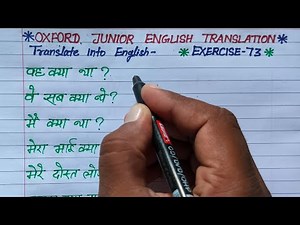 *OXFORD, JUNIOR ENGLISH TRANSLATION*
Translate into English- *EXERCISE-73
वह क्या था ?
वे सब क्या थे?
मैं क्या था ?
मेरा भाई क्या
मेरे दोस्त लोग